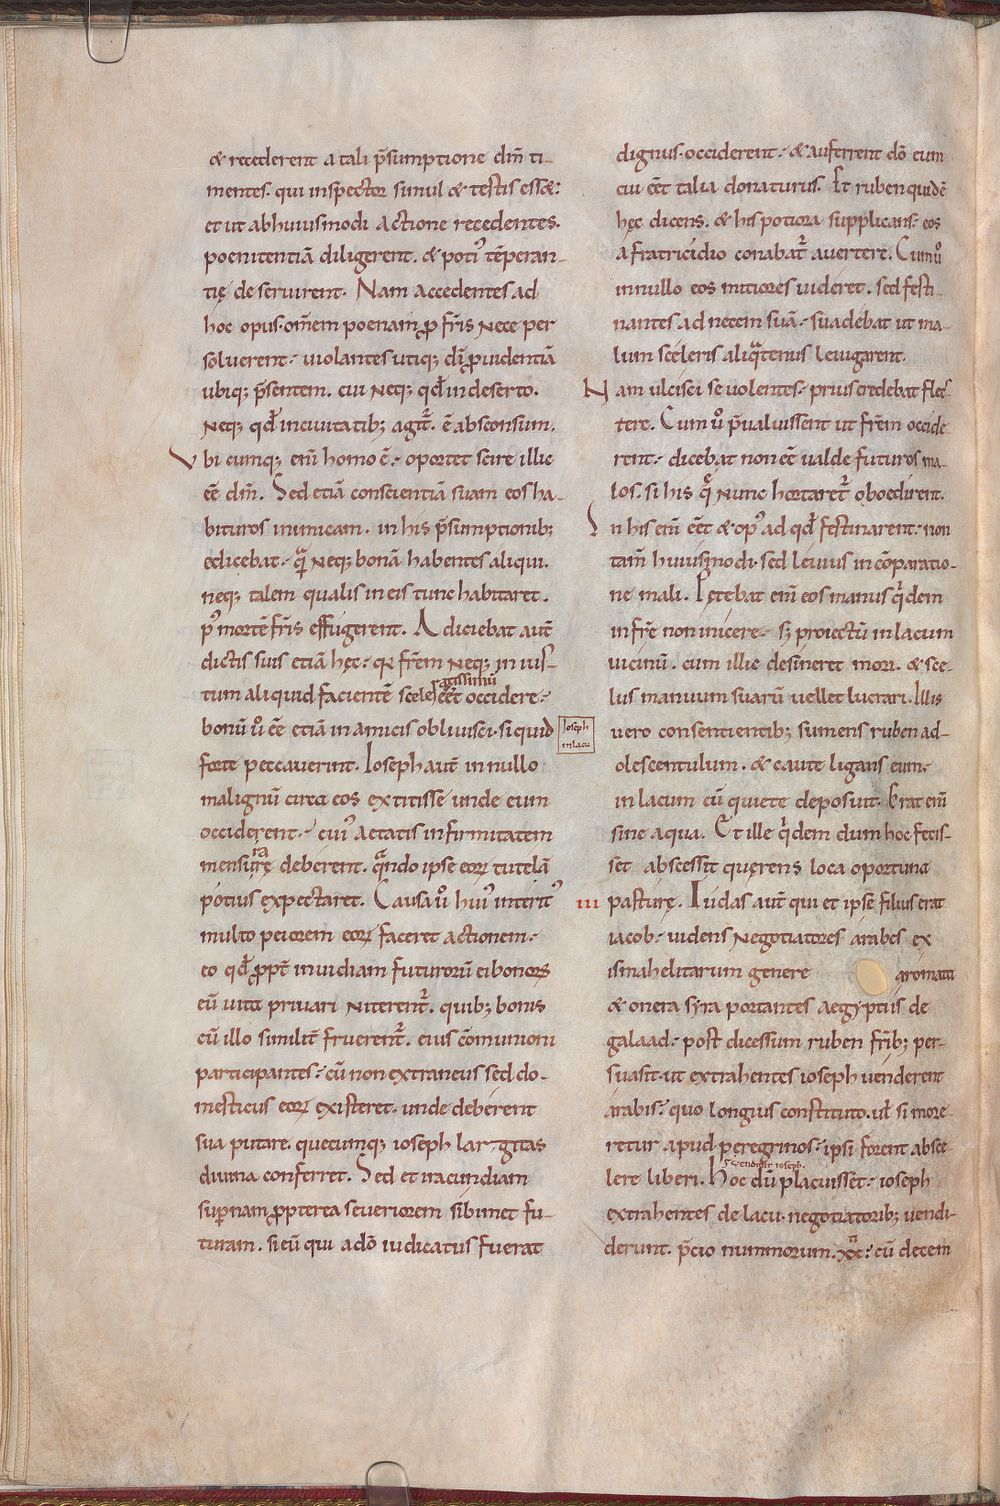 & recederent a tali p̄sumptione dm̄ ti-
mentes. qui inspector simul & testis essæ:
et ut abhuiusmodi actione recedentes.
poenitentiā diligerent. & poti᾽ tēperan-
tię deseruirent. Nam accedentes ad
hoc opus. omēm poenam ꝓ fr̄is nece per
soluerent: uiolantes utiq; dī ꝓuidentiā
ubiq; p̄sentem. cui neq; qđ in deserto.
neq; qđ inciuitatib; agit᷑. ē absconsum.
Vbi cumq; enī homo ē: oportet scire illic
eē dm̄. Sed etiā conscientiā suam eos ha-
bituros inimicam. in his p̄sumptionib;
edicebat: quā neq; bonā habentes aliqui.
neq; talem qualis in eis tunc habitaret.
p᾽ mortē fr̄is effugerent. Adiciebat aut̄
dictis suis etiā hęc: qa fr̄em neq; in ius-
tum aliquid facientē sceleratissimū eēt occidere:
bonū u̾o eē etiā in amicis obliuisci. si quid
forte peccauerint. Ioseph aut̄ in nullo
malignū circa eos extitisse unde eum
occiderent: cui᾽ aetatis infirmitatem
ra
mensurę deberent. qͣndo ipse eoꝝ tutelā
potius expectaret. Causa u̾o hui᾽ interit᾽
multo peiorem eoꝝ faceret actionem:
eo qđ ꝓpt̄ inuidiam futuroꝝ ei bonoꝝ
eū uita priuari niterent᷑. quib; bonis
cū illo similit̄ fruerent᷑. eius cōmunioni
participantes: cū non extraneus sed do-
mesticus eoꝝ existeret. unde deberent
sua putare. quecumq; ioseph largitas
diuina conferret. Sed et iracundiam
supnam ꝓpterea seueriorem sibimet fu-
turam. si eū qui a dō iudicatus fuerat
Ioseph
in lacu
dignus. occiderent: & auferrent dō eum
cui eēt talia donaturus. Et ruben quidē
hęc dicens. & his potiora supplicans: eos
a fratricidio conabat᷑ auertere. Cum u̾o
in nullo eos mitiores uideret. sed festi-
nantes ad necem suā: suadebat ut ma-
lum sceleris aliqͣtenus leuigarent.
Nam ulcisci se uolentes: prius credebat flec-
tere. Cum u̾o p̄ualuissent ut fr̄em occide-
rent: dicebat non eē ualde futuros ma-
los. si his quę nunc hortaret᷑ oboedirent.
In his enī eēt & op᾽ ad qđ festinarent: non
tam̄ huiusmodi. sed leuius in cōparatio-
ne mali. Petebat enī eos manus qͥdem
in fr̄e non inicere: sꝫ proiectū in lacum
uicinū. eum illic desineret mori. & sce-
lus manuum suarū uellet lucrari. Illis
uero consentientib; sumens ruben ad-
olescentulum. & caute ligans eum:
in lacum cū quiete deposuit. Erat enī
sine aqua. Et ille qͥdem dum hoc fecis-
set abscessit querens loca oportuna
III pasturę. Iudas aut̄ qui et ipse filius erat
iacob: uidens negotiatores arabes ex
ismahelitarum genere aromata
& onera syra portantes aegyptus de
galaad: post dicessum ruben fr̄ib; per-
suasit. ut extrahentes ioseph uenderent
arabis: quo longius constituto. ul̄ si more-
retur apud peregrinos: ipsi forent absce-
s Vendit᷑ ioseph.
lere liberi. Hoc dū placuisset: ioseph
extrahentes de lacu. negotiatorib; uendi-
derunt. p̄cio nummorum. xx: cū decem